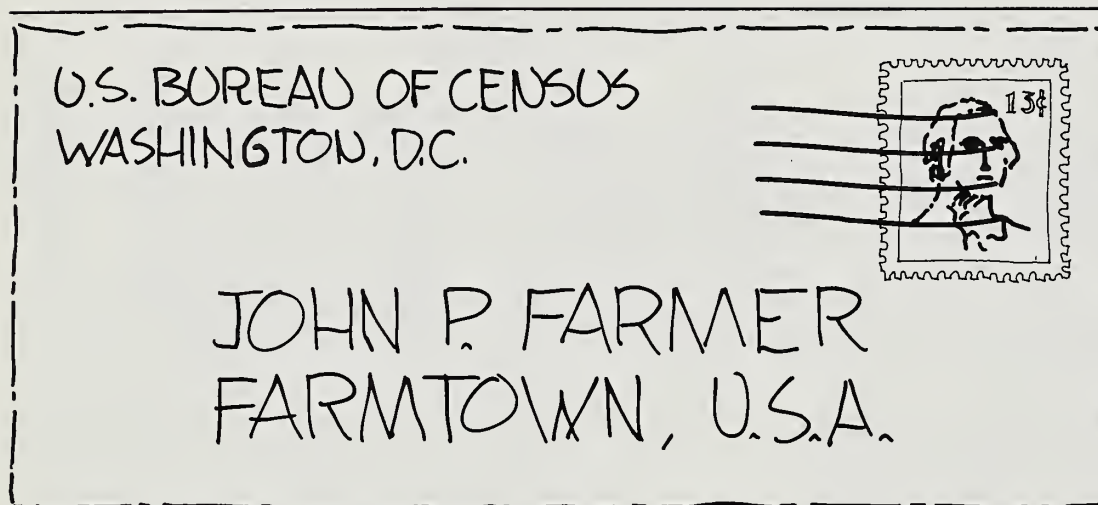 U.S. BUREAU OF CENSUS
WASHINGTON, D.C.
13¢
JOHN P. FARMER
FARMTOWN, U.S.A.